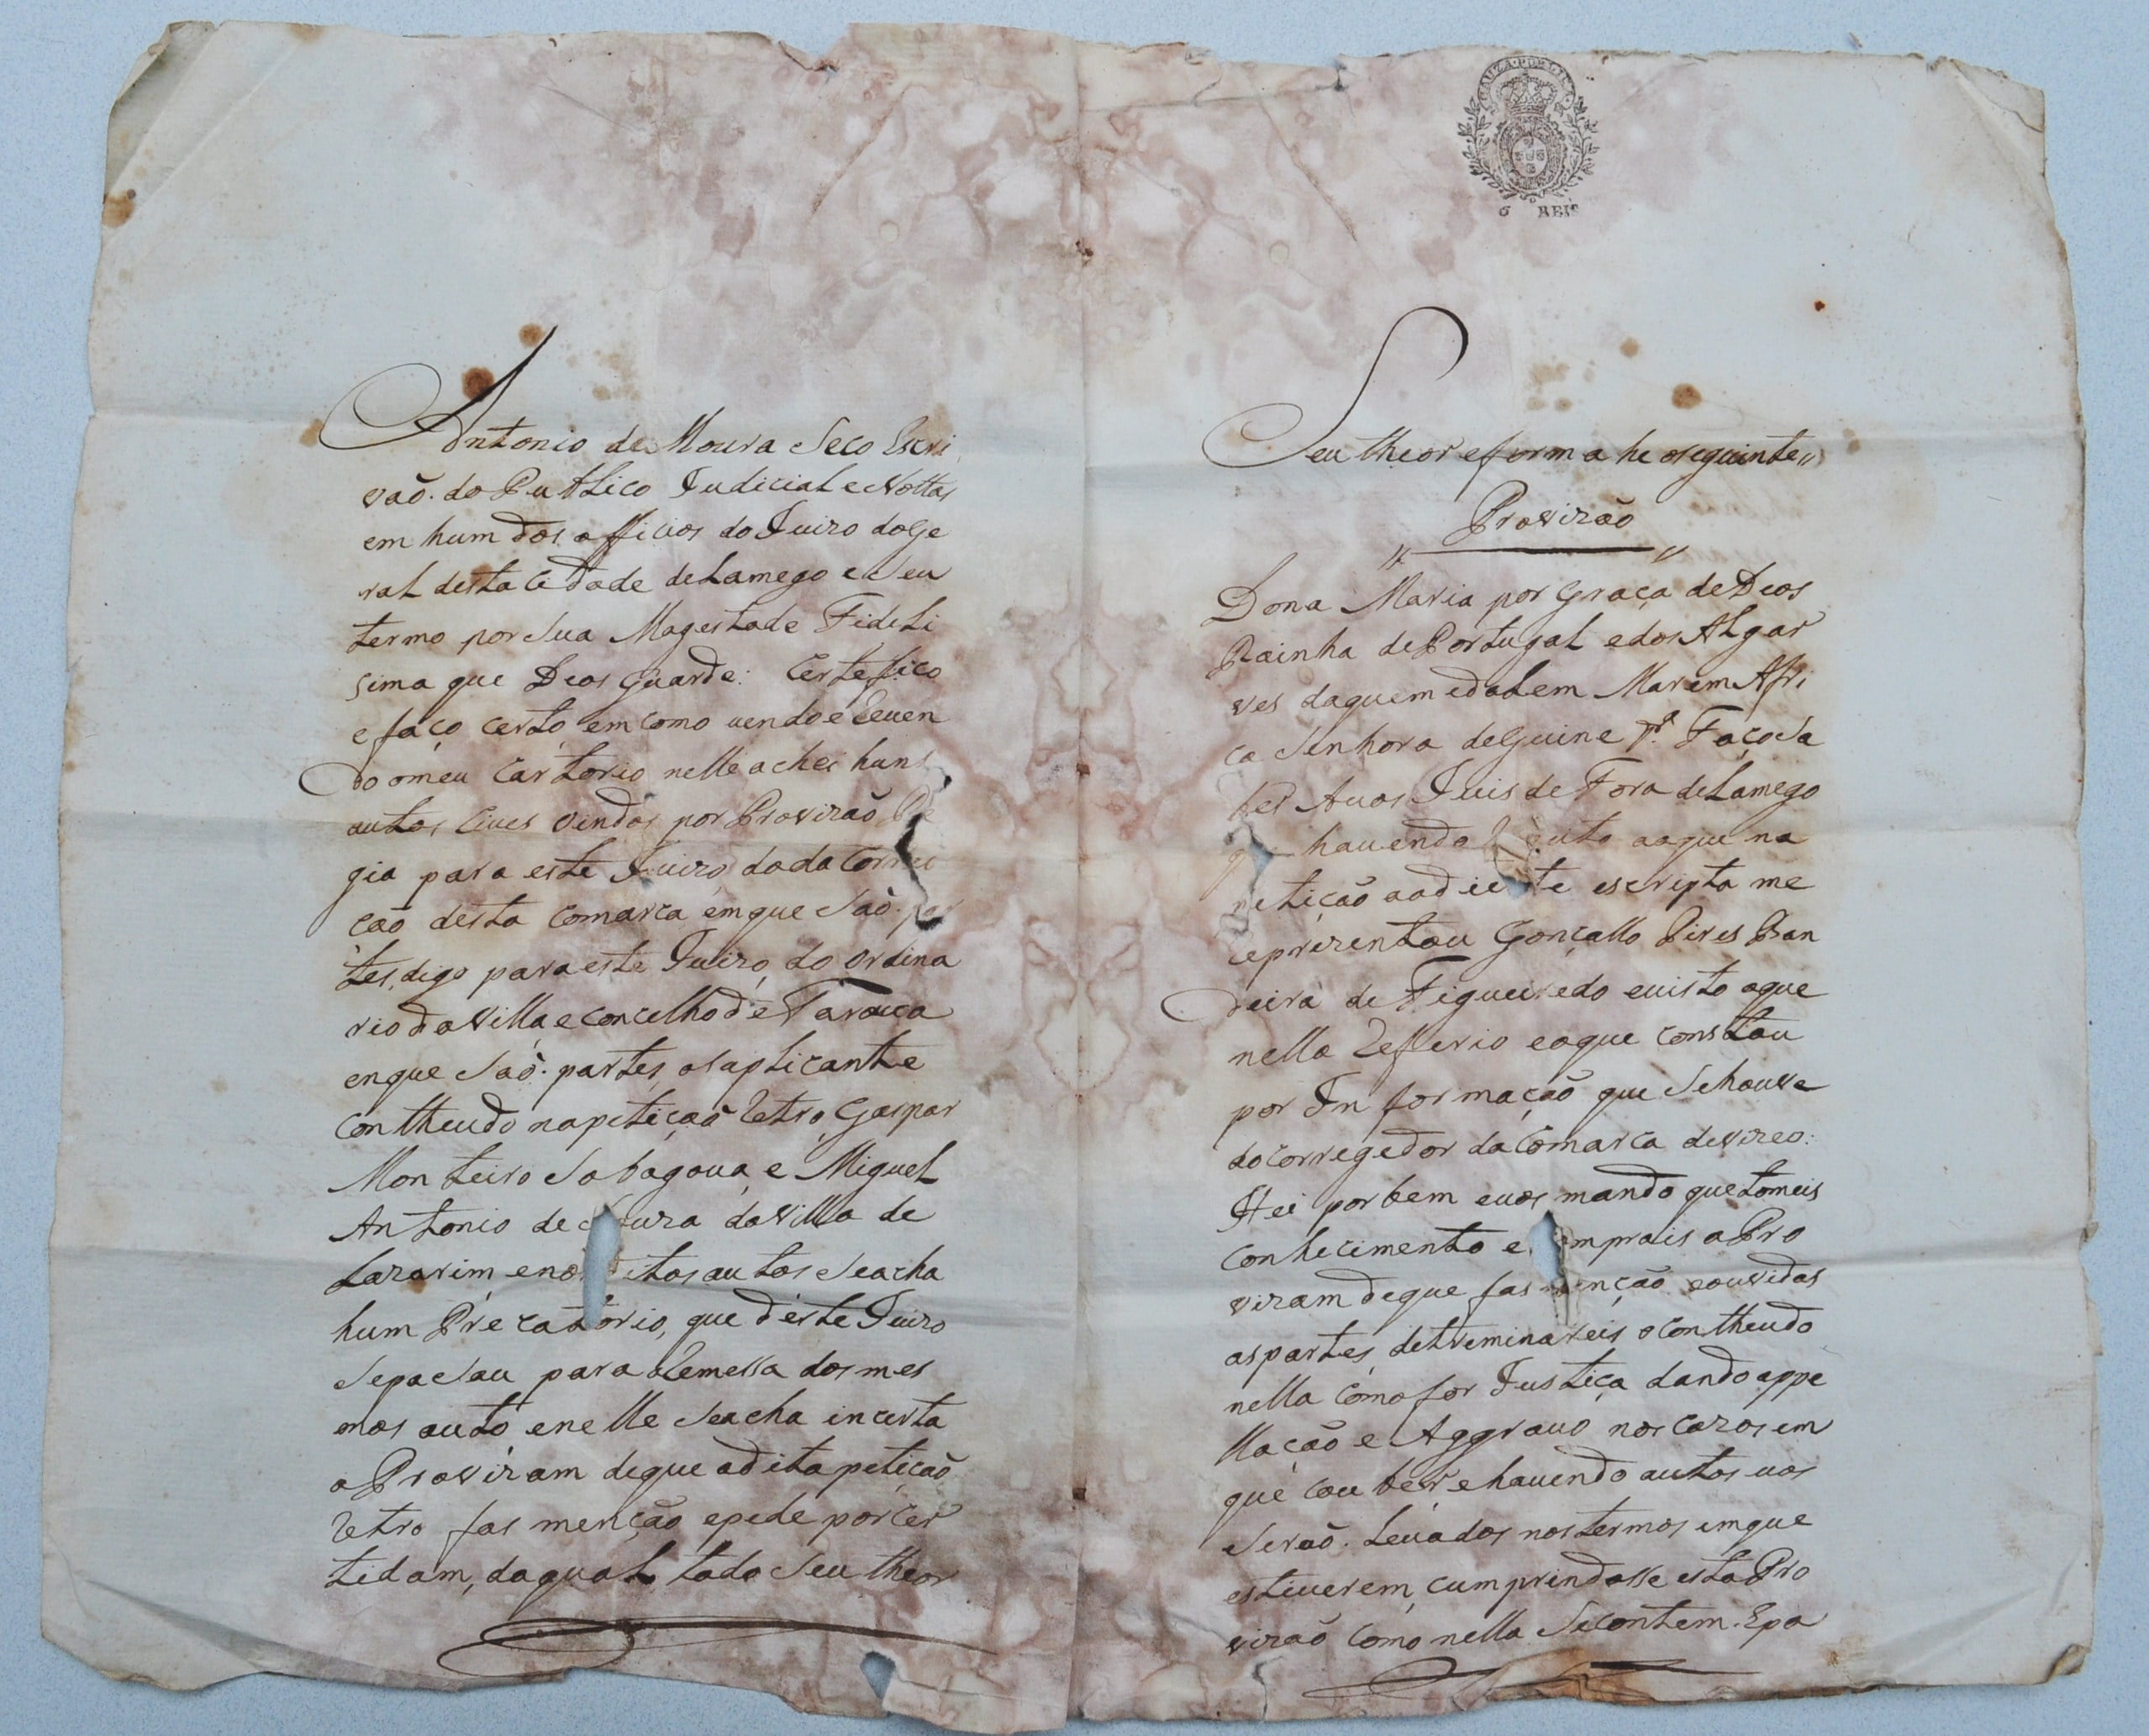 Antonio de Moura Seco Escri
vaõ. do Publico Judicial e Nottas
em hum dos officios do Juizo do Ge
ral desta Cidade de Lamego e Seu
termo por Sua Magestade Fideli
sima que Deos Guarde: Certefico
e faço certo em como vendo e Reven
do o meu Cartorio nelle achei huns
autos Cives vindos por Provizaõ Re
gia para este Juizo da da Correi
caõ desta Comarca em que Saõ. par
tes, digo para este Juizo do ordina
rio da Villa e concelho de Tarouca
en que Saõ. partes o Suplicante
Contheudo na petiçaõ Retro Gaspar
Monteiro e Miguel
Antonio de da Villa de
Lazarim e nos ditos autos Se acha
hum Precatorio, que deste Juizo
Se paSou para Remessa dos mes
mos auto e nelle Se acha incerta
a Provizam de que a dita petiçaõ
Retro fas mençaõ e pede por Cer
tidam, da qual todo Seu theor
CAUZA PUBLICA
REIS
Seu theor e forma he o seguinte //
Provizaõ
Dona Maria por Graça de Deos
Rainha de Portugal e dos Algar
ves daquem e dalem Mar em Afri
ca Senhora de Guine Faço Sa
ber A vos Juis de Fora de Lamego
que havendo Respeito ao que na
petiçaõ a o diente escripta me
Reprezentou Gonçallo Pires Ban
deira de Figueiredo e visto o que
nella Refferio e o que Constou
por Informaçaõ que Se houve
do Corregedor da Comarca de Vizeo:
Hei por bem e vos mando que tomeis
Conhecimento e Cumprais a Pro
vizam de que fas mençaõ e ouvidas
as partes detreminareis o Contheudo
nella Como for Justiça dando appe
llaçaõ e Aggravo nos Cazos em
que Couber e havendo autos vos
Seraõ. Levados nos termos em que
estiverem, cumprindosse esta Pro
vizaõ Como nella Se contem. E pa